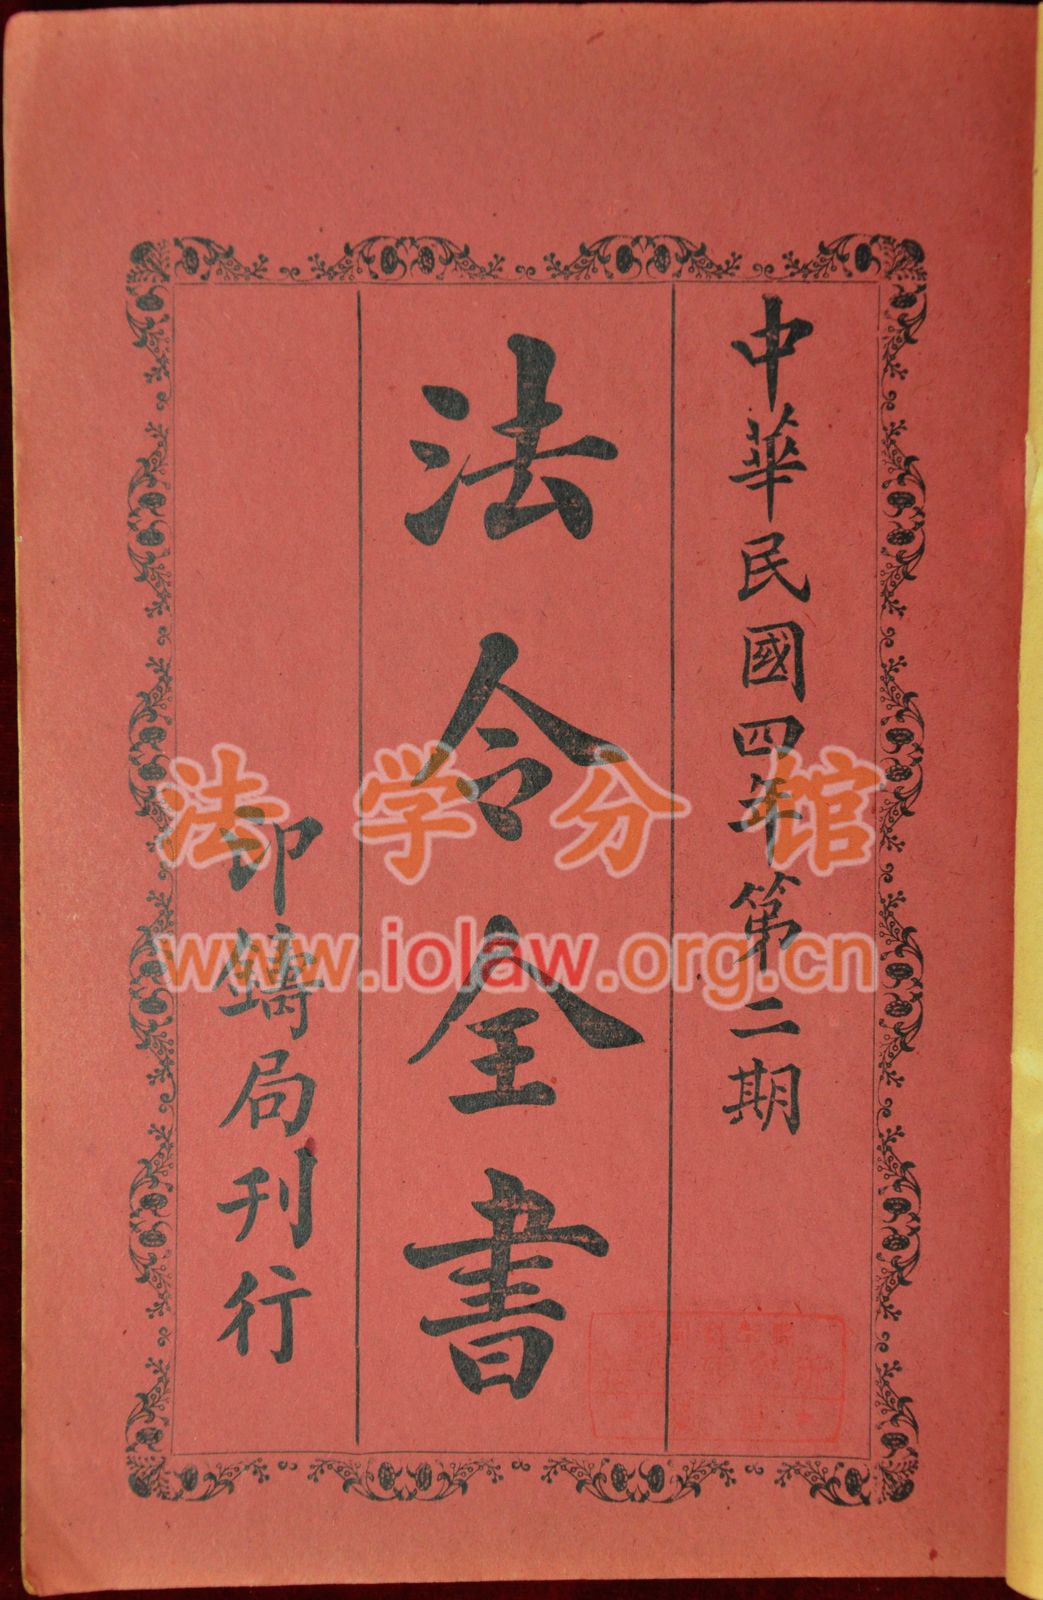 中華民國四年第二期
法令全書
印鑄局刊行
法学分馆
www.iolaw.org.cn